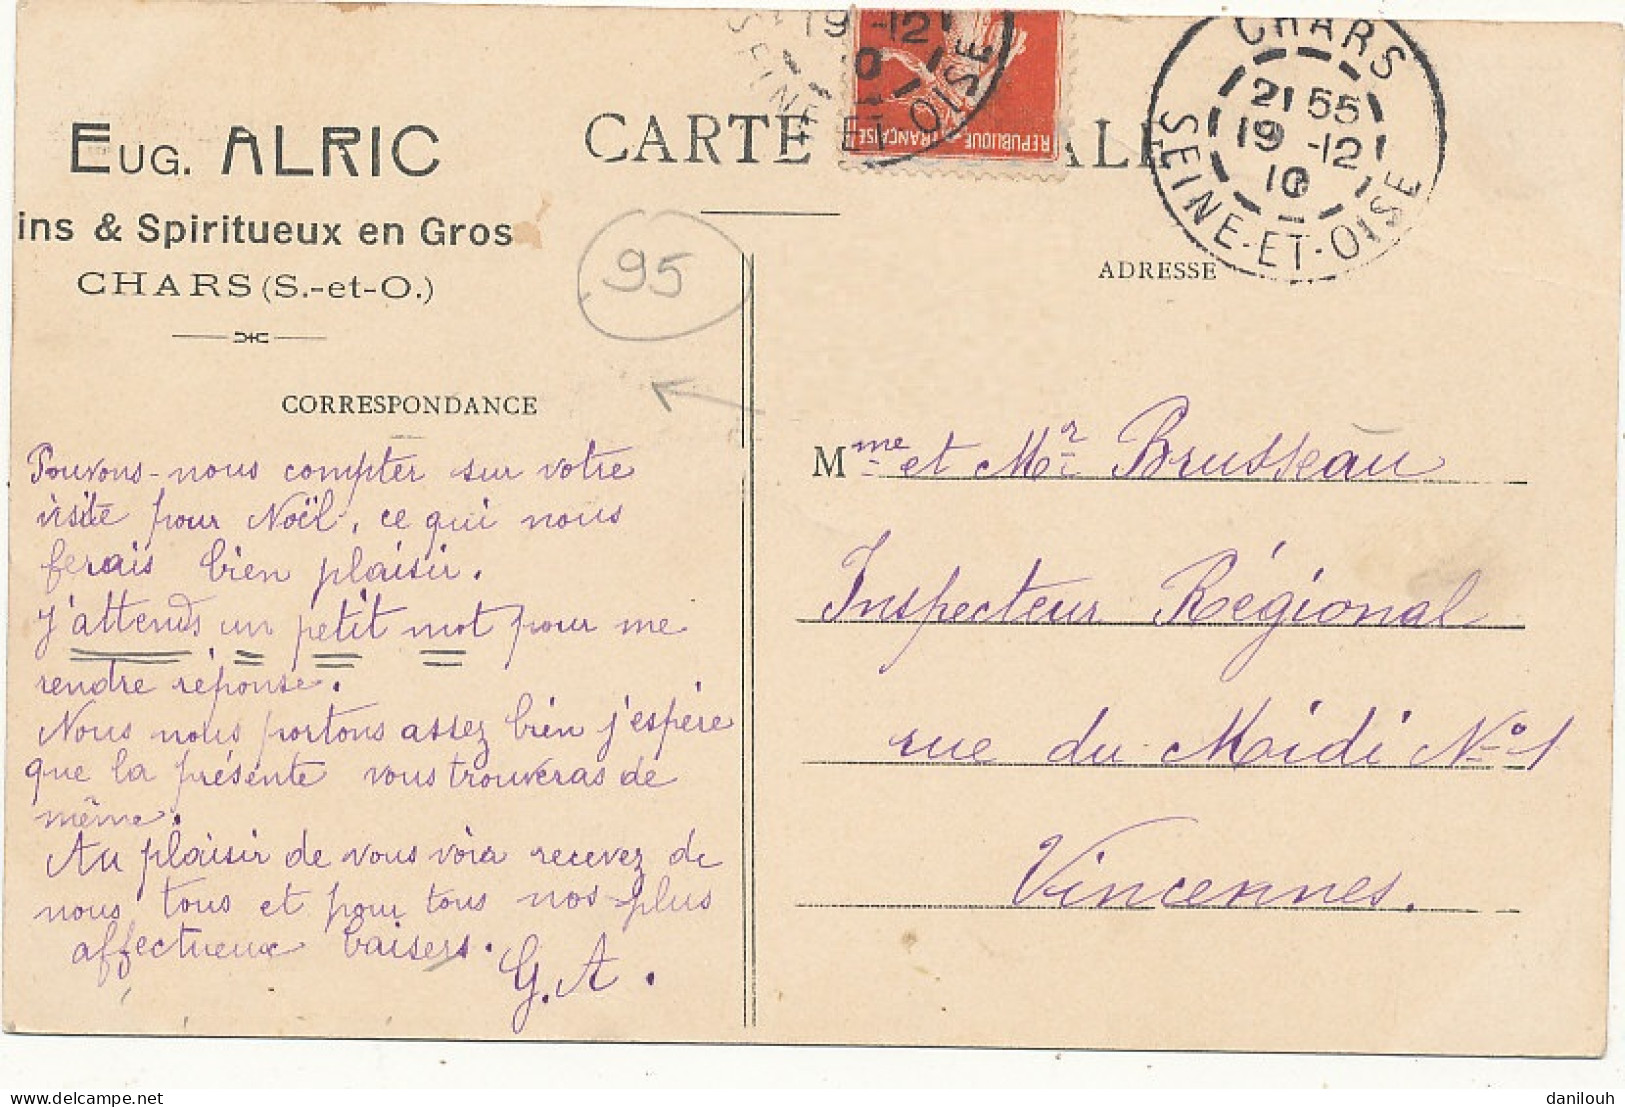 EUG. ALRIC
ins & Spiritueux en Gros
CHARS (S.-et-O.)
95
CORRESPONDANCE
Pouvons-nous compter sur votre
visite pour Noël, ce qui nous
ferais bien plaisir.
J'attends un petit mot pour me
rendre réponse.
Nous nous portons assez bien j'espère
que la présente vous trouveras de
même.
Au plaisir de vous voir recevez de
nous tous et pour tous nos plus
affectueux baisers.
G. A.
CARTE ALE
19 -12
10
SEINE-ET-OISE
REPUBLIQUE FRANÇAISE
CHARS
21 55
19 -12
10
SEINE-ET-OISE
ADRESSE
Mme et Mr Brusseau
Inspecteur Régional
rue du Midi No 1
Vincennes.
danilouh